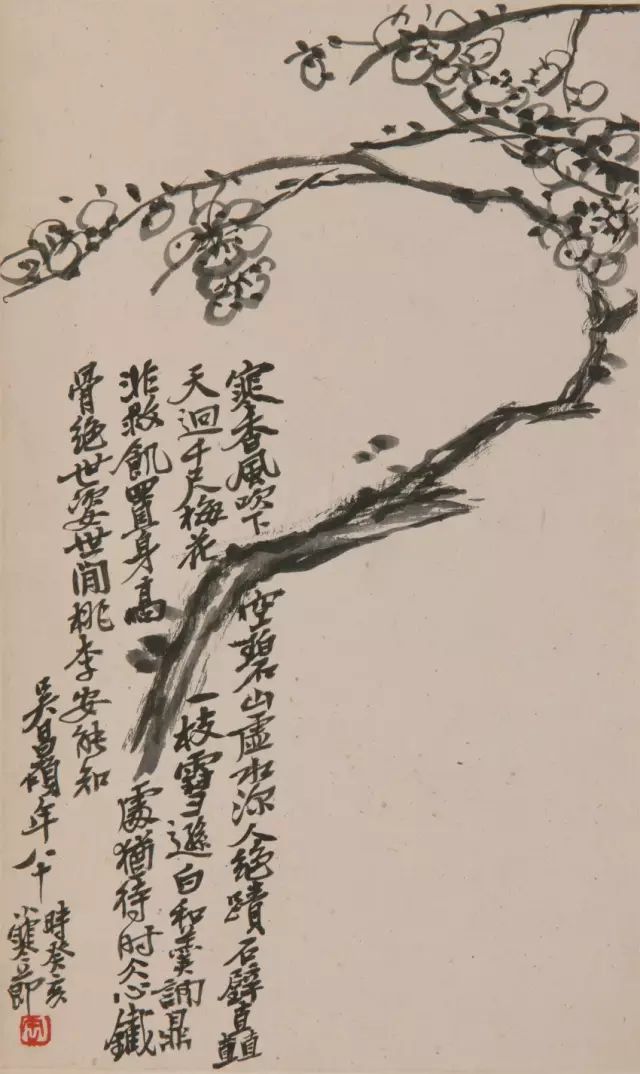 寒香風吹下空碧山虛水深人絕蹟石壁矗
天迴千尺梅花一枝雪遜白和羹調鼎
非救飢置身高處猶待时仌心鐵
骨絕世姿世閒桃李安能知
吳昌碩年八十
時癸亥
小寒節